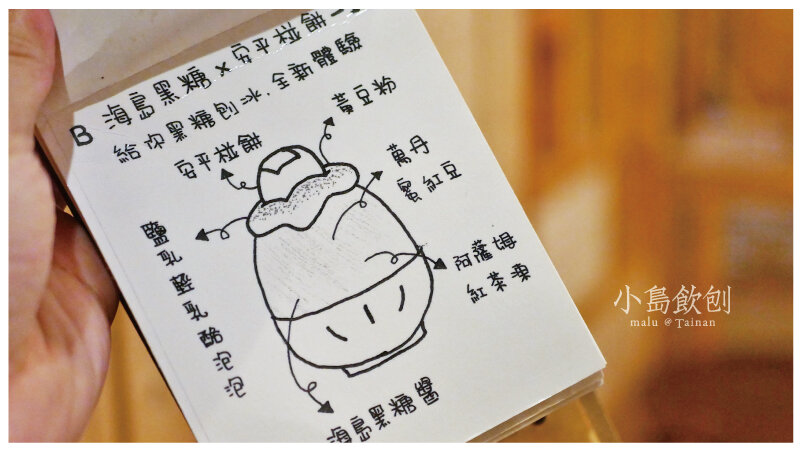 B 海島黑糖 × 安平椪餅
給你黑糖刨冰,全新體驗
安平椪餅
黃豆粉
萬丹
蜜紅豆
鹽
乳
乳
酪
泡
泡
阿薩姆
紅茶凍
海島黑糖醬
小島飲刨
malu @ Tainan